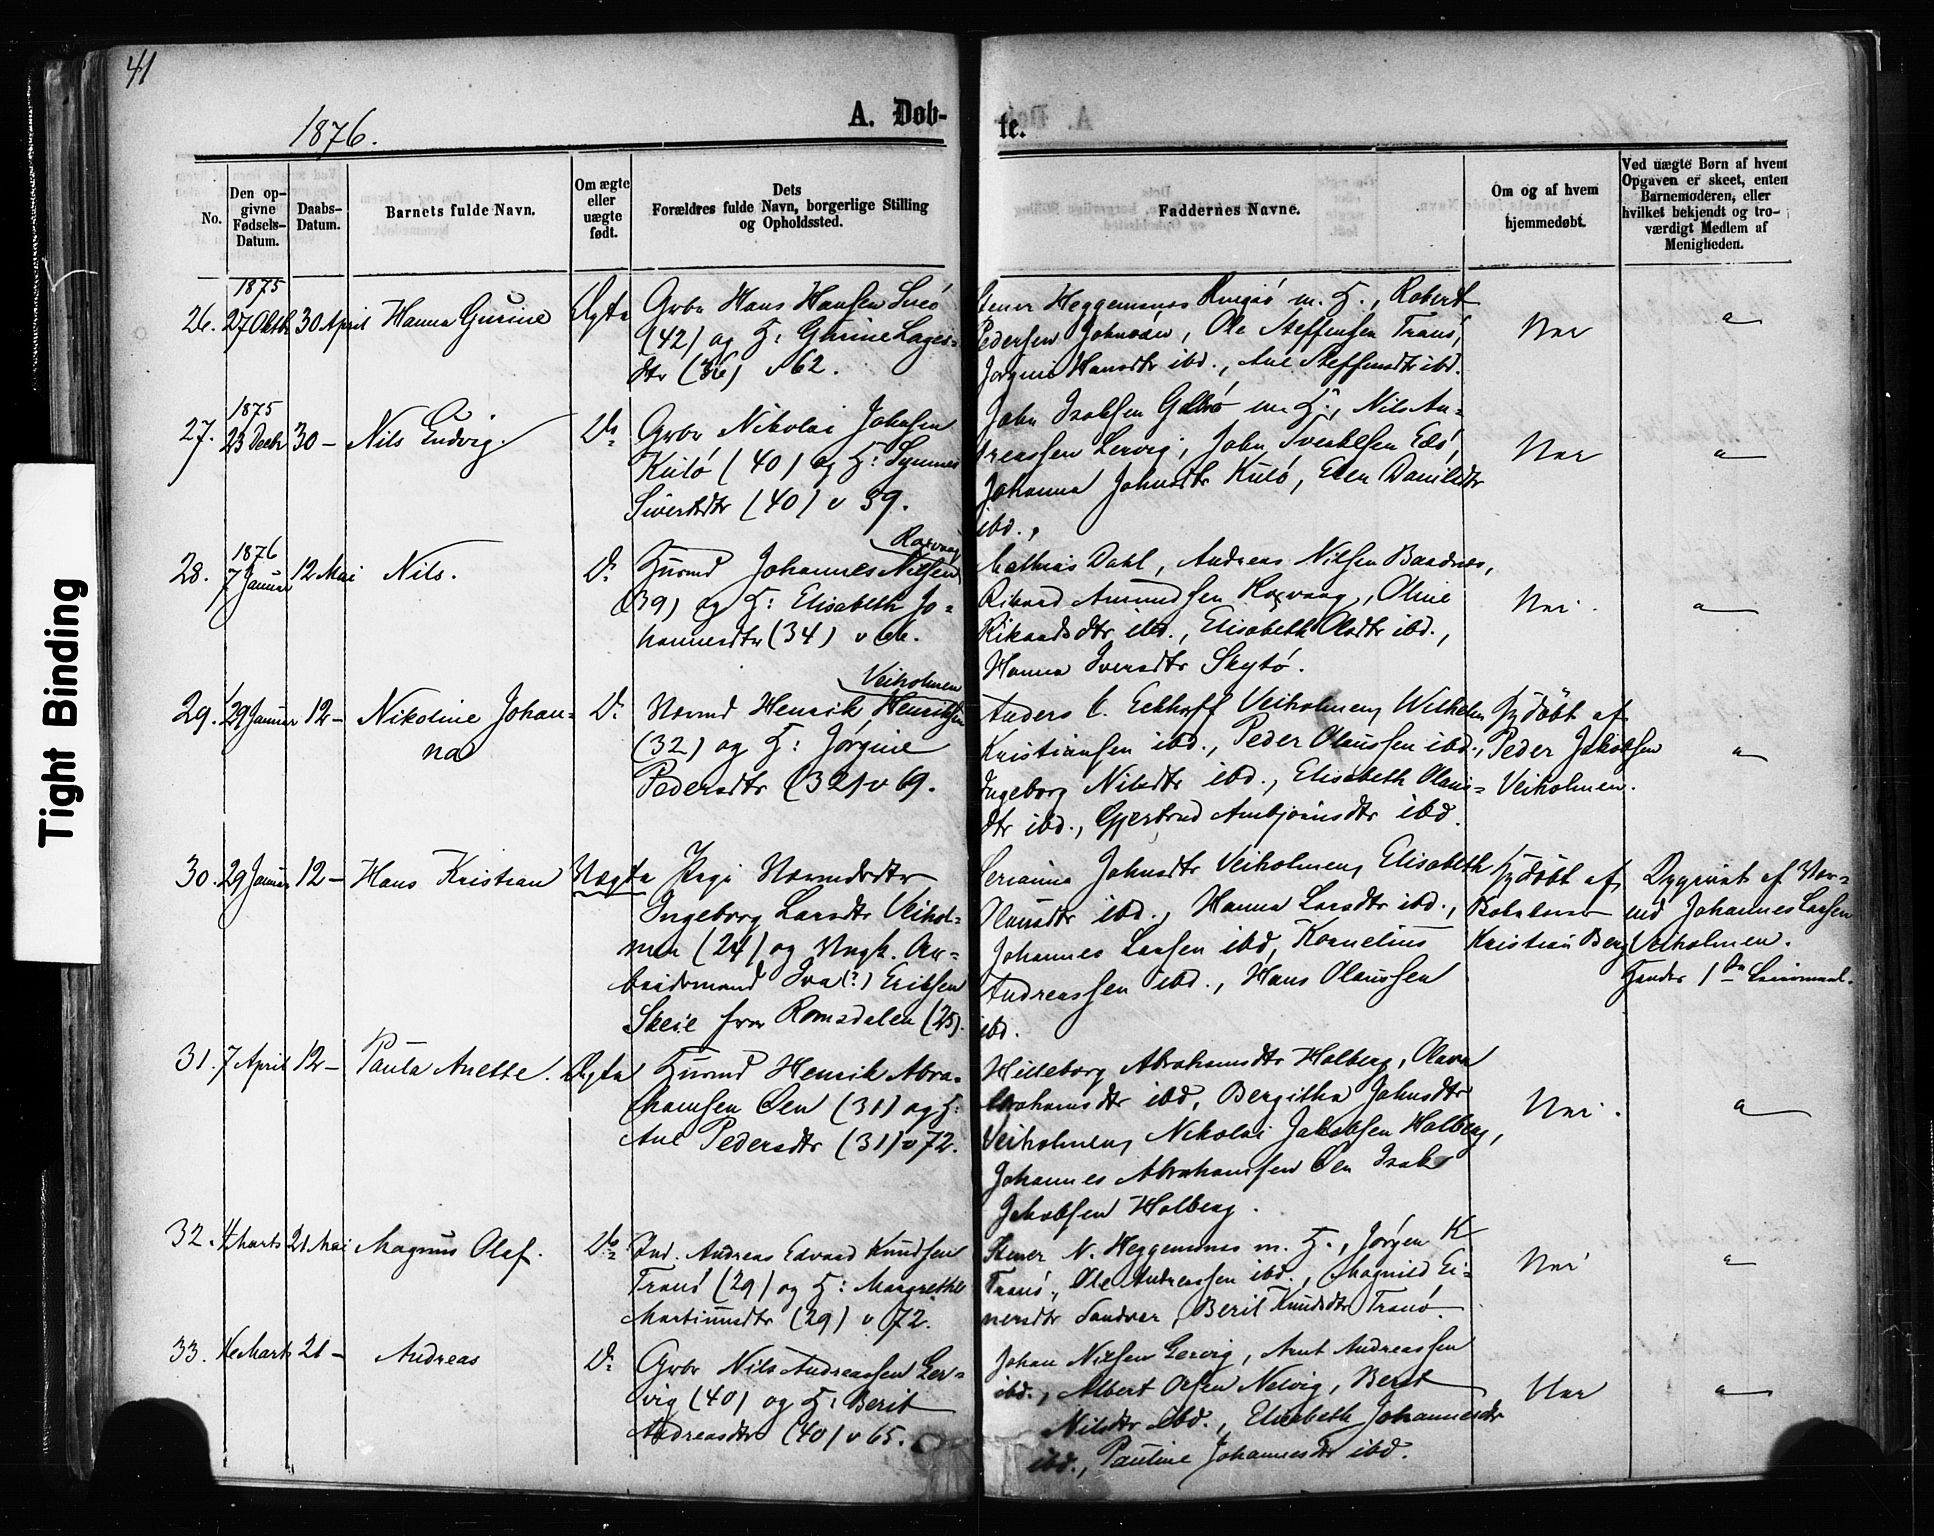 41
1876.
A. Døb-
te.
No.
Den op-
givne
Fødsels-
Datum.
Daabs-
Datum.
Barnets fulde Navn.
Om ægte
eller
uægte
født.
Dets
Forældres fulde Navn, borgerlige Stilling
og Opholdssted.
Faddernes Navne.
Om og af hvem
hjemmedøbt.
Ved uægte Børn af hvem
Opgaven er skeet, enten
Barnemoderen, eller
hvilket bekjendt og tro-
værdigt Medlem af
Menigheden.
1875
26. 27 Oktb 30 April Hanna Gurine Ægte
Grbr Hans Hansen
(42) og H: Gurine Lages-
dtr (36) v 62.
Stener Heggemsnes m. H., Robert
Pedersen, Ole Steffensen Tranö,
Jorgine Hansdtr ibd., Ane Steffensdtr ibd.
Nei
"
1875
27. 23 Decbr 30 - Nils Ludvig. Do
Grbr Nikolai Johnsen
Kulö (40) og H: Synnes
Sivertsdtr (40) v 59.
John Isaksen m. H., Nils An-
dreassen Lervig, John Edö,
Johanna Johnsdtr Kulö, Elen Danielsdtr
ibd.,
Nei
"
1876
28. 7 Januar 12 Mai Nils. Do
Husmd Johannes Nilsen
Rosvaag
(39) og H: Elisabeth Jo-
hannesdtr (34) v 66.
Mathias Dahl, Andreas Nilsen Baadnes,
Rikard Amundsen Rosvaag, Oline
Rikardsdtr ibd., Elisabeth Olsdtr ibd.,
Hanna Iversdtr Skytö.
Nei.
"
29. 29 Januar 12 - Nikoline Johan-
na
Do
Veiholmen
Nørmd Henrik Henriksen
(32) og H: Jørgine
Pedersdtr (32) v 69.
Anders C. Eckhoff Veiholmen, Wilhelm
Kristiansen ibd., Peder Olaussen ibd.,
Ingeborg Nilsdtr ibd., Elisabeth Olaus-
dtr ibd., Gjertrud Arnbjørnsdtr ibd.
Hjdöbt af
Peder Jakobsen
Veiholmen.
"
30. 29 Januar 12 - Hans Kristian Uægte
Pige
Ingeborg Larsdtr Veihol-
men (24) og Ungk. Ar-
beidsmand Iva(?) Eriksen
Skeie fra Romsdalen (25).
Serianna Johnsdtr Veiholmen, Elisabeth
Olausdtr ibd., Hanna Larsdtr ibd.,
Johannes Larsen ibd, Kornelius
Andreassen ibd., Hans Olaussen
ibd.
Hjdöbt af
Kristian Berg
Opgivet af Nør-
md Johannes Larsen
Veiholmen.
Hendes 1ste Leiermaal.
31. 7 April 12 - Paula Anette. Ægte
Husmd Henrik Abra-
hamsen Öen (31) og H:
Ane Pedersdtr (31) v 72.
Hilleborg Abrahamsdtr Holberg, Olava
Abrahamsdtr ibd, Bergitha Johnsdtr
Veiholmen, Nikolai Jakobsen Holberg,
Johannes Abrahamsen Öen Isak
Jakobsen Holberg.
Nei.
"
32. 4 Marts 21 Mai Magnus Olaf. Do
Ind. Andreas Edvard Knudsen
Tranö (29) og H: Margrethe
Martinusdtr (29) v 72.
Stener N. Heggemsnes m. H., Jørgen K
Tranö, Ole Andreassen ibd., Magnild Ei-
nersdtr Sandvær, Berit Knudsdtr Tranö.
Nei
"
33. Marts 21 - Andreas Do
Grbr Nils Andreassen Ler-
vig (40) og H: Berit
Andreasdtr (40) v 65.
Johan Nilsen Lervig, Arnt Andreassen
ibd., Albert Olsen Nelvig, Berit
Nilsdtr ibd., Elisabeth Johannesdtr
ibd., Pauline Johannesdtr ibd.
Nei
"
Tight Binding